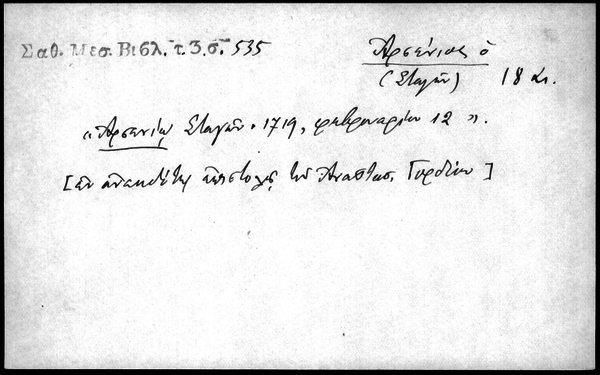 Σαθ. Μεσ. Βιβλ. τ. 3. σ. 535
Ἀρσένιος ὁ
(Σταγῶν) 18 αι.
«Ἀρσενίῳ Σταγῶν. 1719, φεβρουαρίου 12».
[ἐν ἀνεκδότοις ἐπιστολαῖς τοῦ Ἀναστασ. Γορδίου]